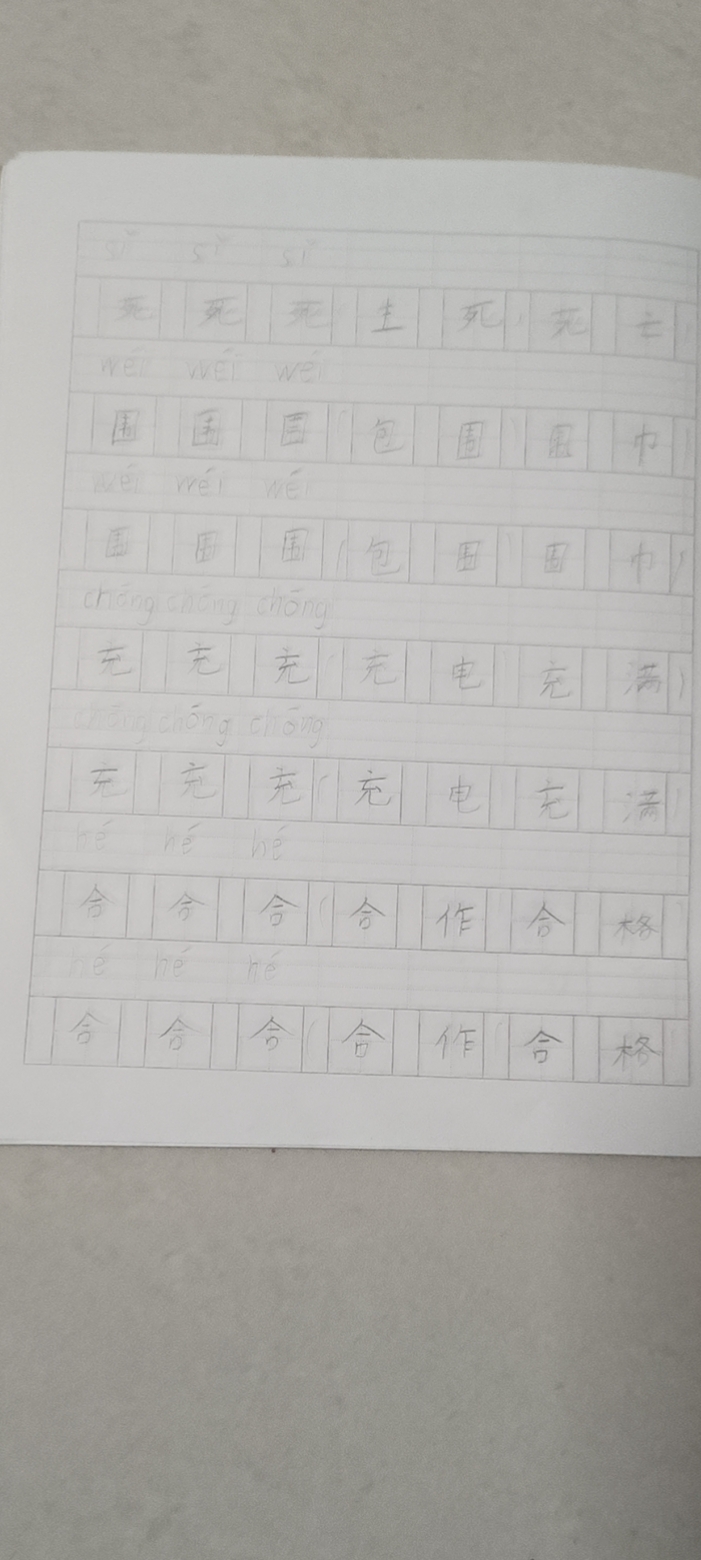 sǐ sǐ sǐ
死 死 死 ( 生 死 ) 死 亡 )
wéi wéi wéi
围 围 围 ( 包 围 ) 围 巾 )
wéi wéi wéi
围 围 围 ( 包 围 ) 围 巾 )
chōng chōng chōng
充 充 充 ( 充 电 ) 充 满 )
chōng chōng chōng
充 充 充 ( 充 电 充 满 )
hé hé hé
合 合 合 ( 合 作 ) 合 格 )
hé hé hé
合 合 合 ( 合 作 ) 合 格 )